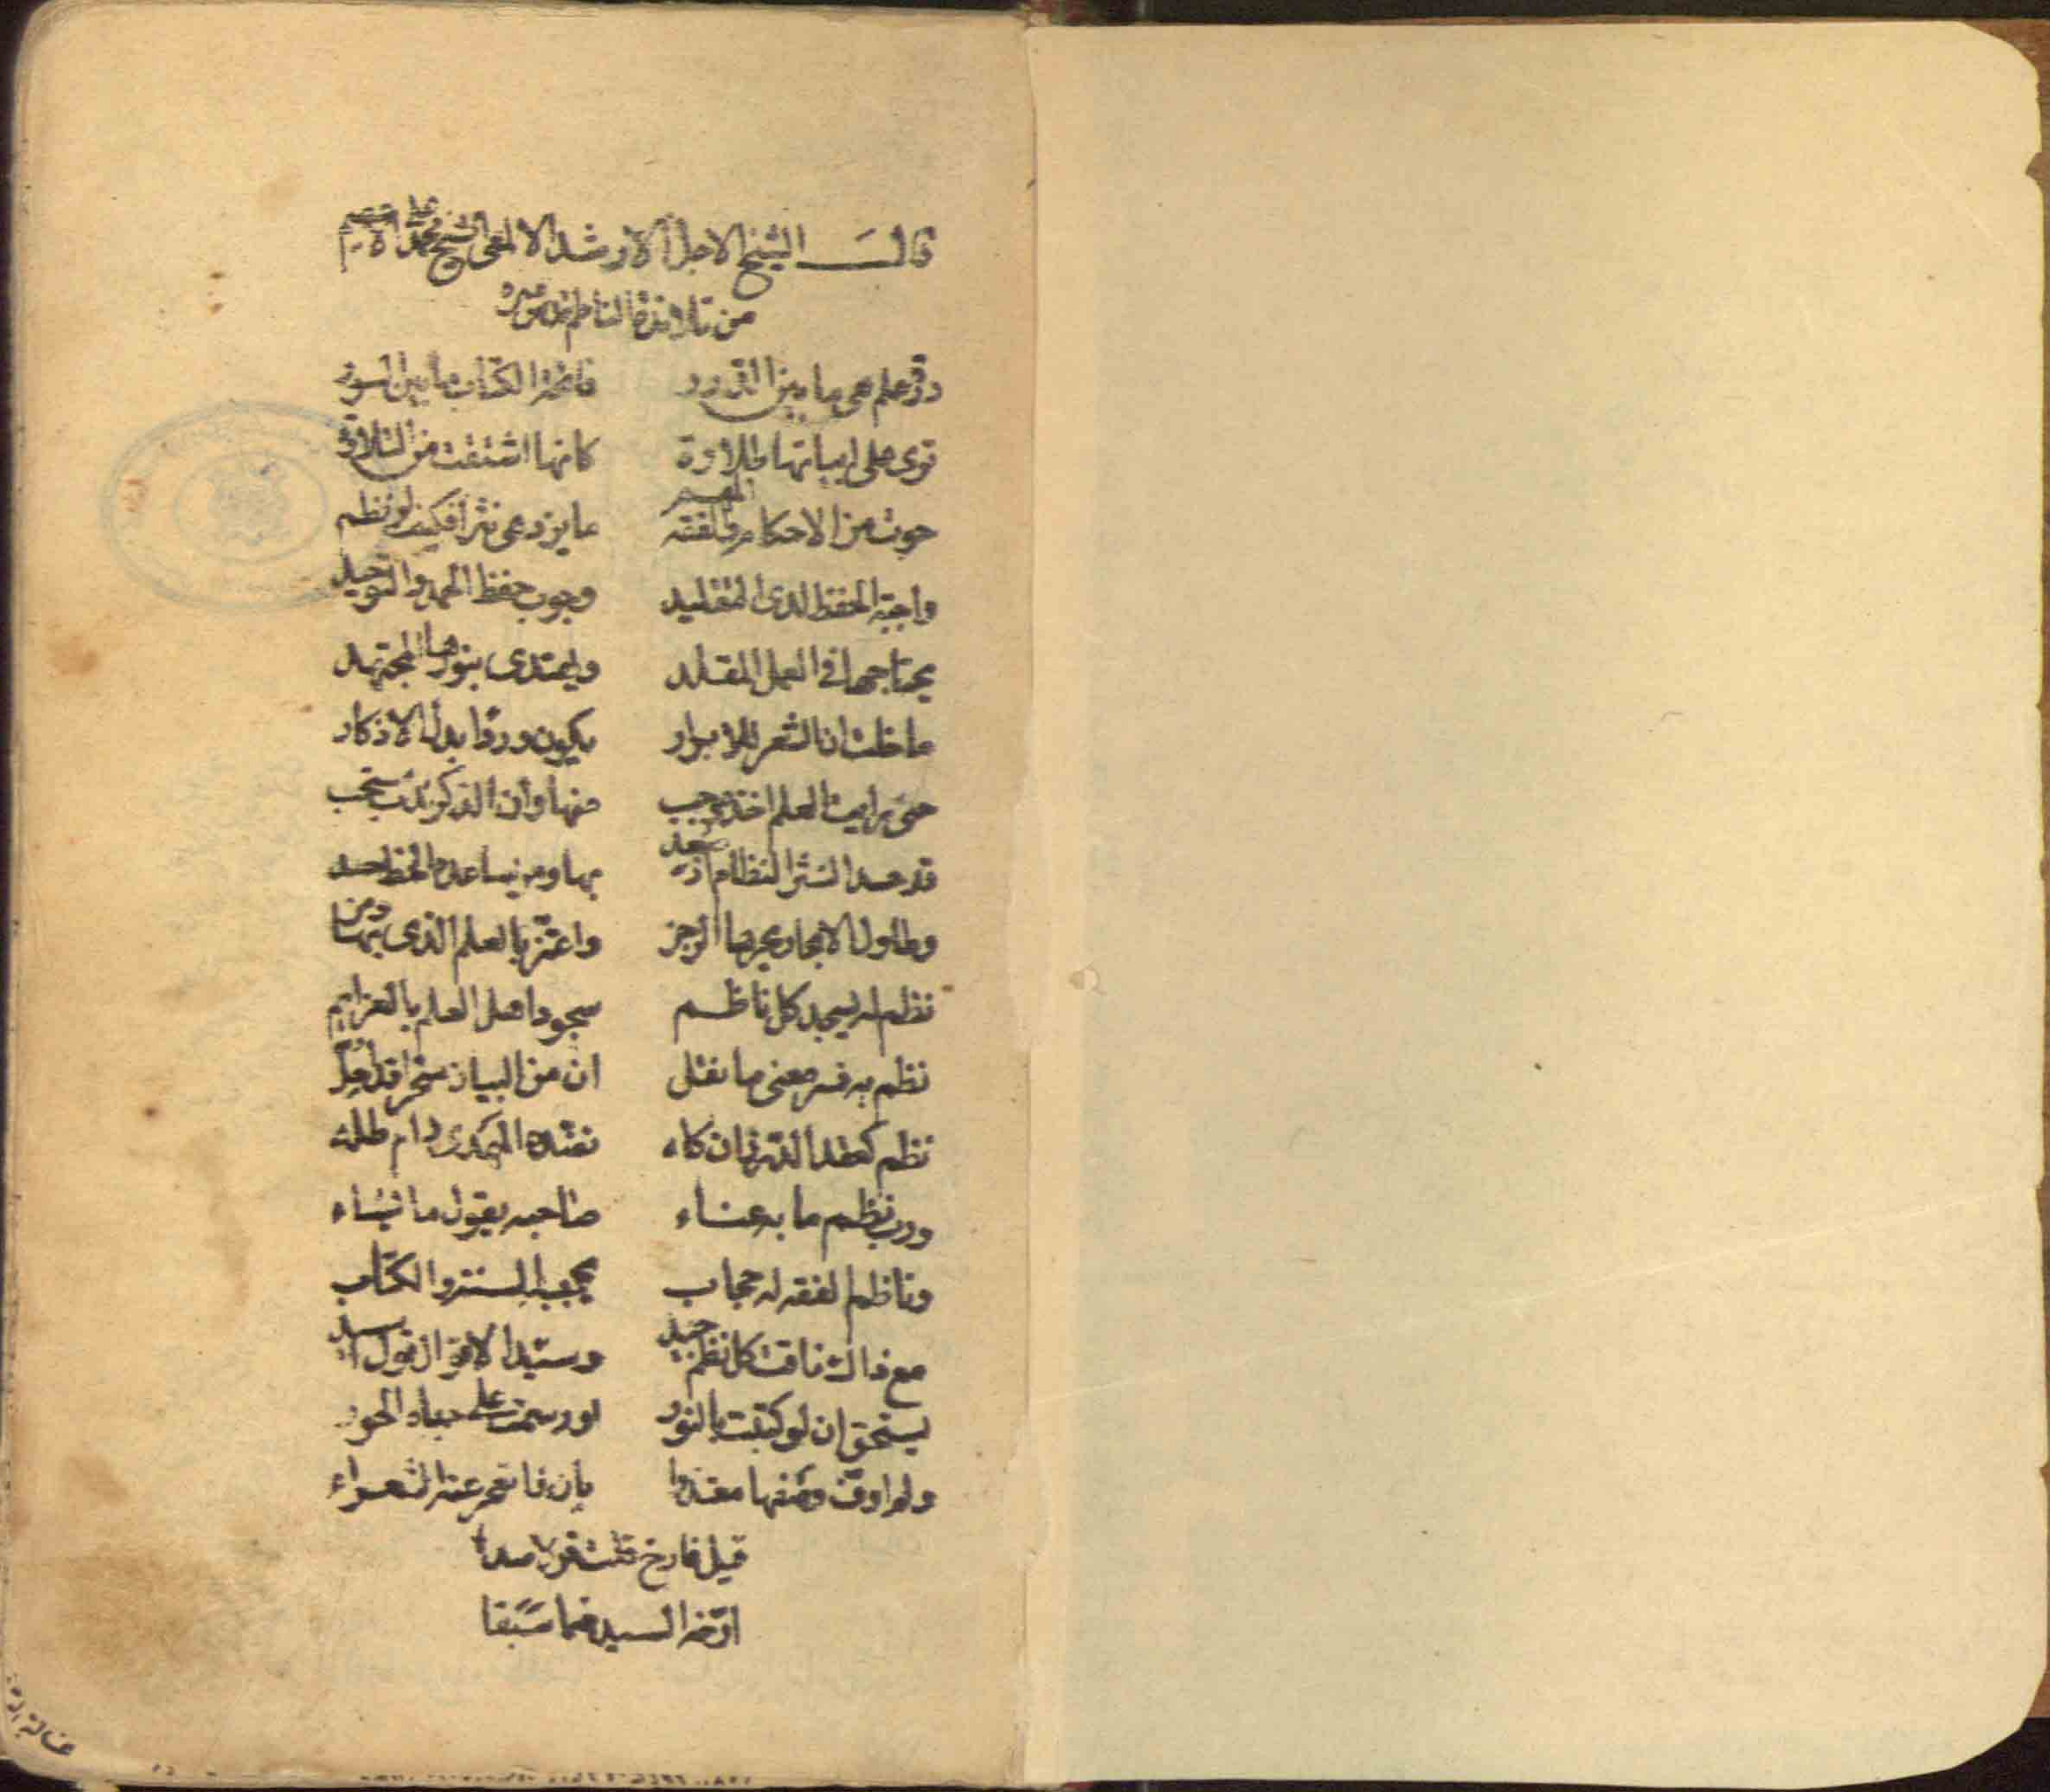 قال الشيخ الاجل الارشد الالمعي الشيخ محمد علي الاعسم
من تلامذة الناظم قدس سره
درة علم هي ما بين الدرر فاتحة الكتاب ما بين السور
ترى على ابياتها طلاوة كانها اشتقت من التلاوة
حوت من الاحكام والفقه المهم ما يزدهي نثرا فكيف لو نظم
واجبة الحفظ لدى التقليد وجوب حفظ الحمد والتوحيد
يحتاجها في العمل المقلد ويهتدي بنورها المجتهد
ما خلت ان الشعر للابرار يكون وردا بدل الاذكار
حتى رايت العلم اخذه يجب منها وان الذكر ندب يستحب
قد حسد النثر النظام اذ سعد بها ومن يساعده الحظ حسد
وطاول الابحار بحرها الرجز واعتز بالعلم الذي بها ومن
نظم له يسجد كل ناظم سجود اهل العلم بالعزائم
نظم به فسر معنى ما نقل ان من البيان سحرا قد احل
نظم كعقد الدر زان كله نضده المهدي دام ظله
ورب نظم ما به عناء صاحبه يقول ما يشاء
وناظم الفقه له حجاب بحجب السنة والكتاب
مع ذاك فاقت كل نظم جيد وسيد الاقوال قول السيد
يستحق ان لو كتبت بالنور او رسمت على جباه الحور
ولم اوف وصفها معتذرا بان فاتحمر عنه الشعراء
قيل فارخ قلت قولا صدقا
ارخه السيد فيما سبقا